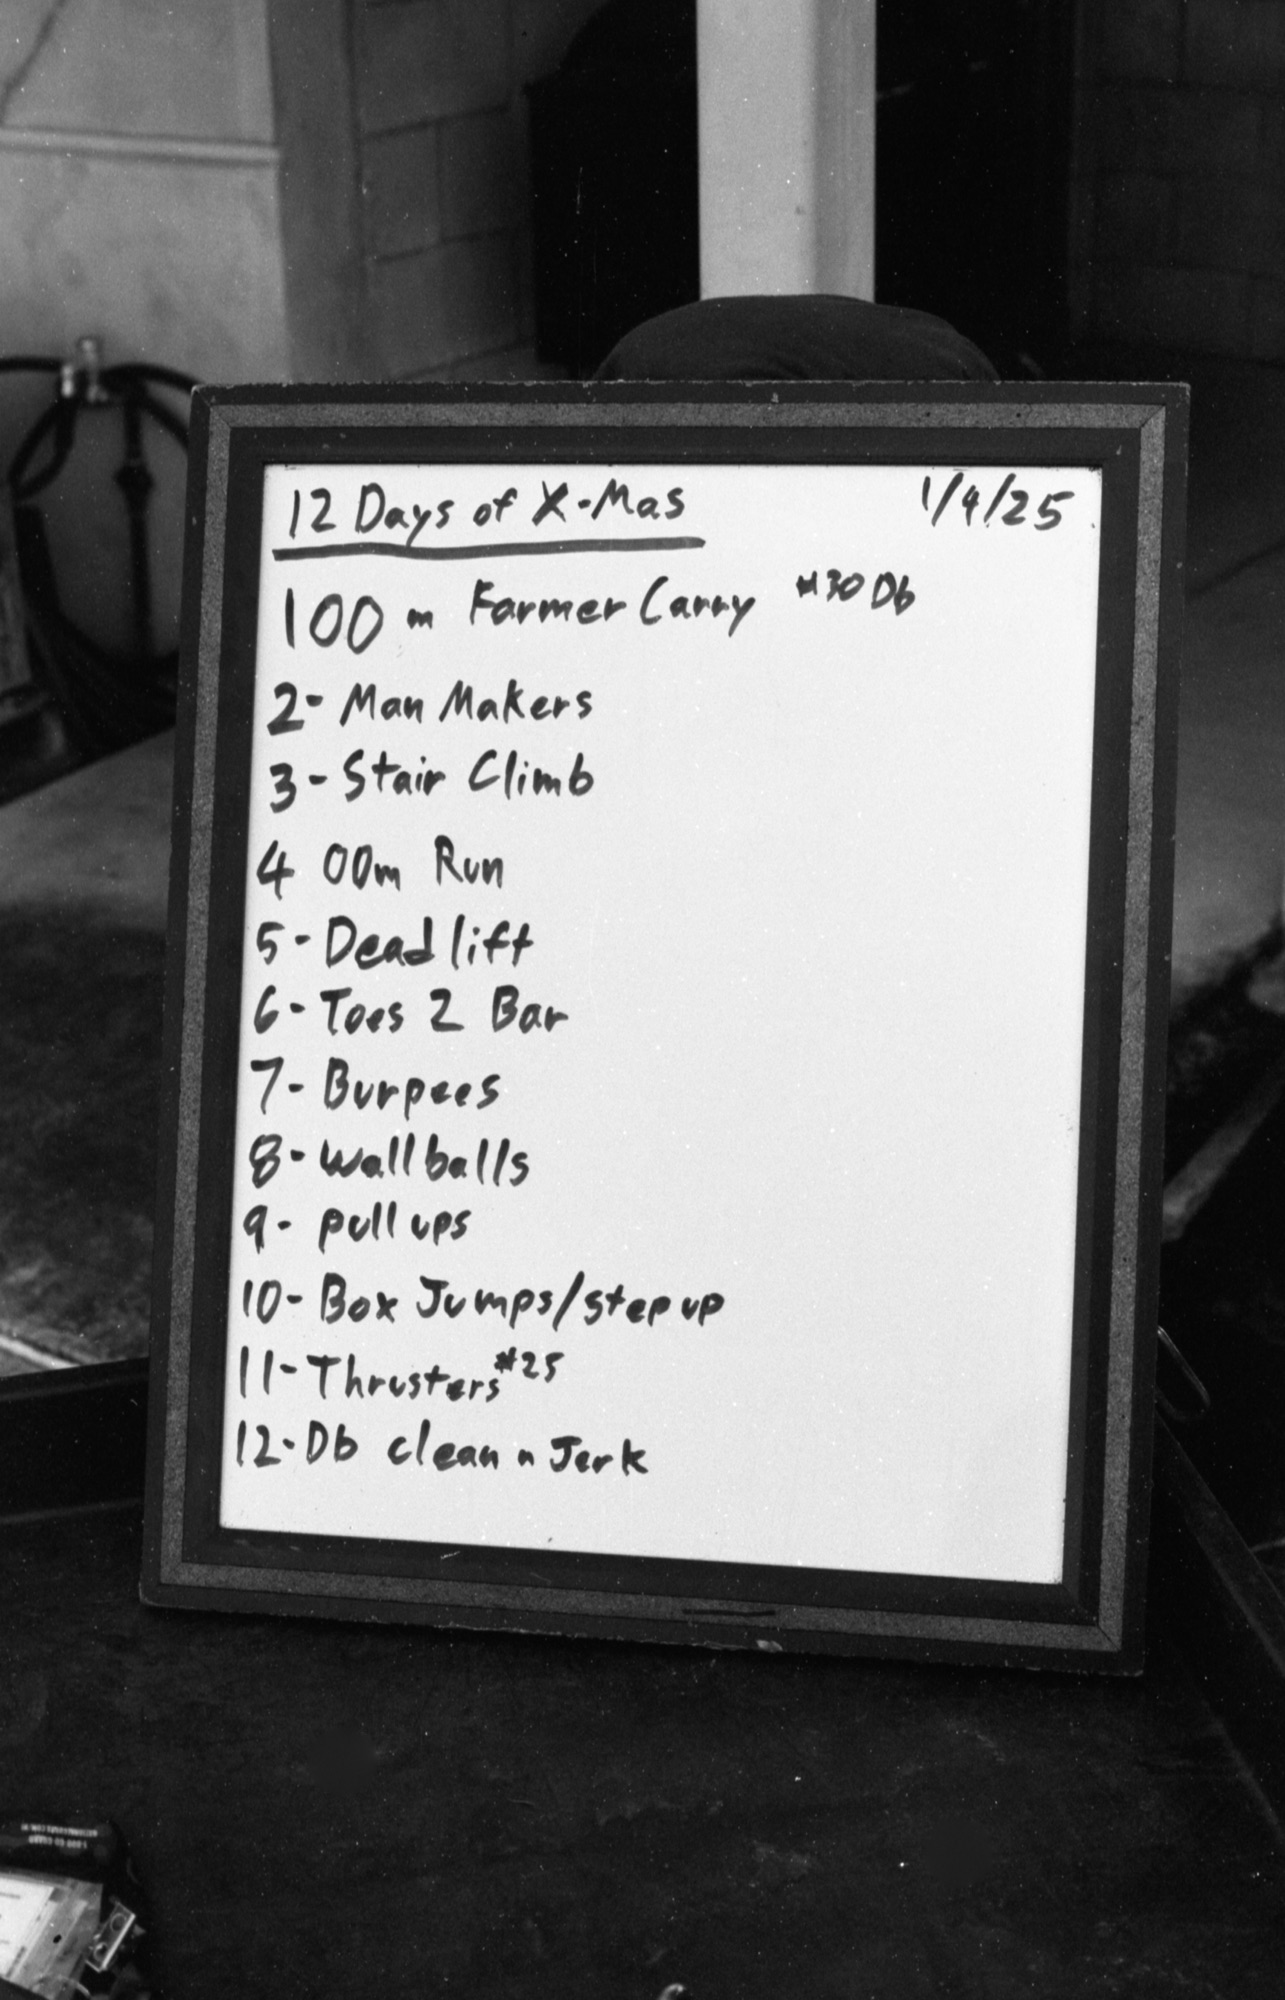 12 Days of X-Mas 1/4/25
100 m Farmer Carry #30 Db
2- Man Makers
3- Stair Climb
4 00m Run
5- Deadlift
6- Toes 2 Bar
7- Burpees
8- Wallballs
9- pull ups
10- Box Jumps/step up
11- Thrusters #25
12- Db clean n Jerk